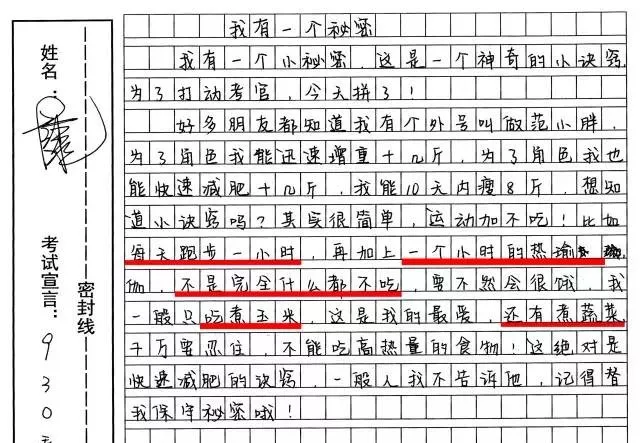 我有一个秘密
我有一个小秘密,这是一个神奇的小诀窍,
为了打动考官,今天拼了!
好多朋友都知道我有个外号叫做范小胖,
为了角色我能迅速增重十几斤,为了角色我也
能快速减肥十几斤,我能10天内瘦8斤,想知
道小诀窍吗?其实很简单,运动加不吃!比如
每天跑步一小时,再加上一个小时的热瑜
伽,不是完全什么都不吃,要不然会很饿,我
一般只吃煮玉米,这是我的最爱,还有煮蔬菜
千万要忍住,不能吃高热量的食物!这绝对是
快速减肥的诀窍,一般人我不告诉他,记得替
我保守秘密哦!
姓名:
考试宣言:
930
密封线